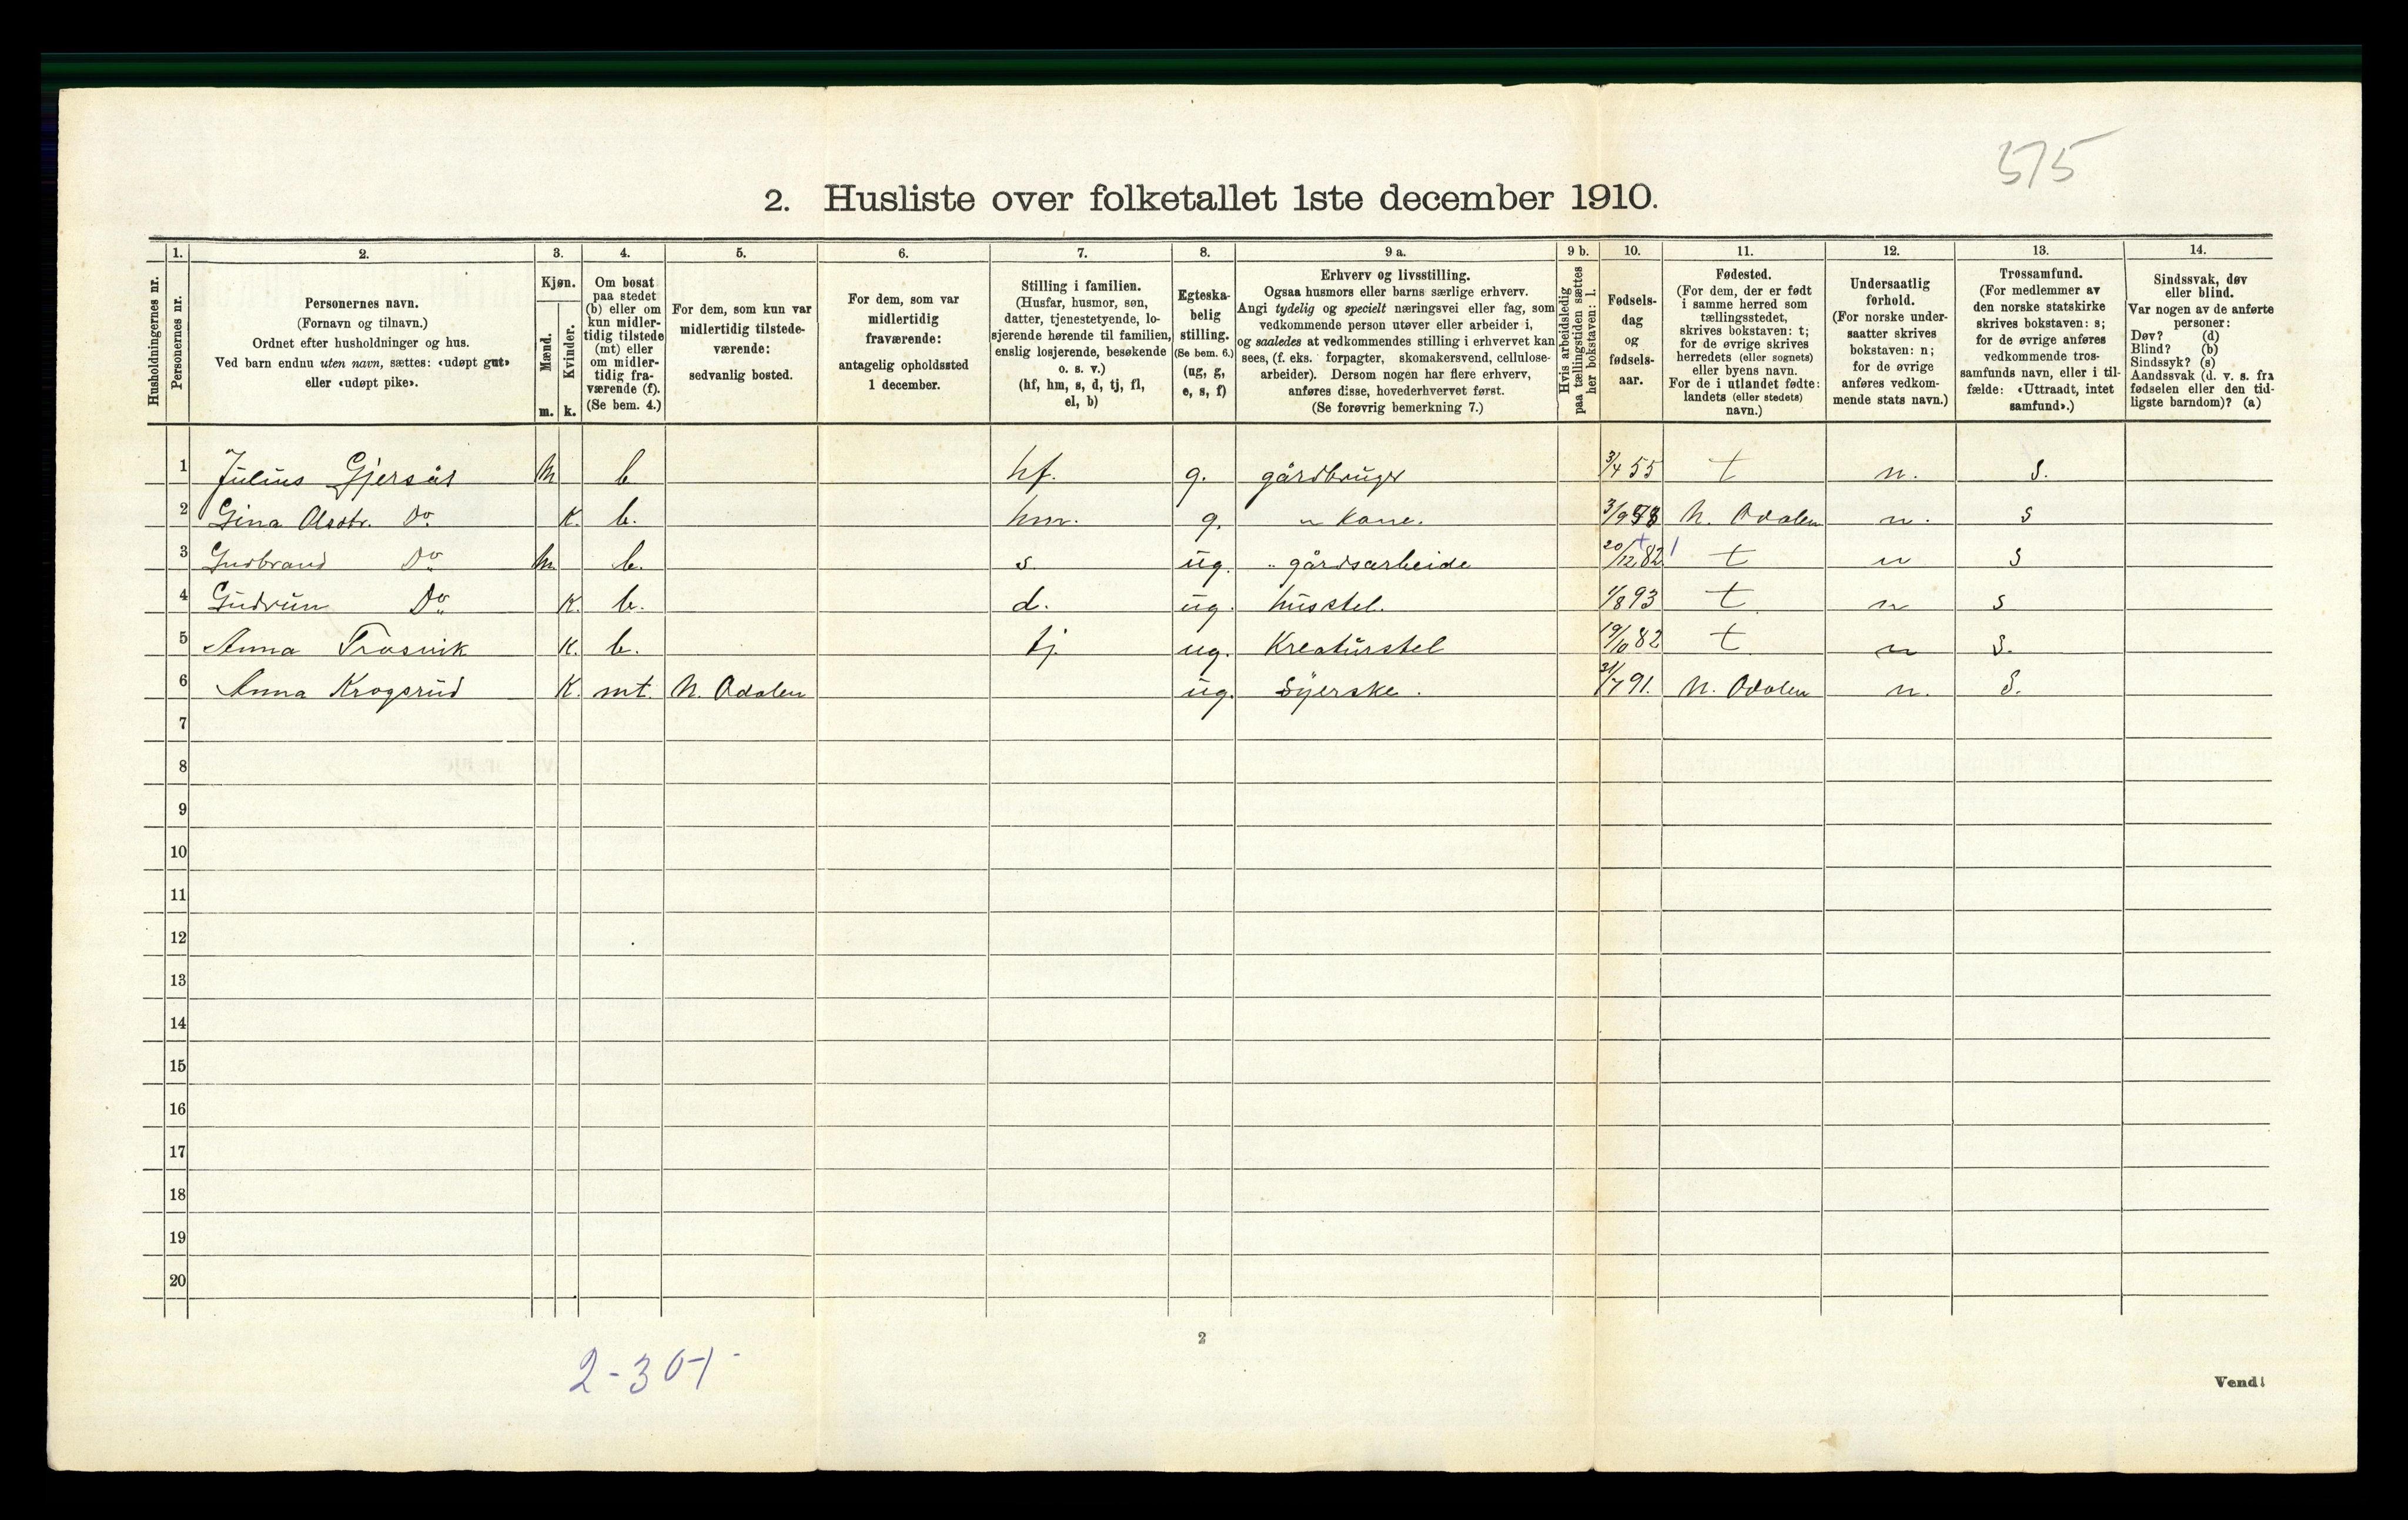 575
2. Husliste over folketallet 1ste december 1910.
Husholdningernes nr.
1. Personernes nr.
2. Personernes navn.
(Fornavn og tilnavn.)
Ordnet efter husholdninger og hus.
Ved barn endnu uten navn, sættes: «udøpt gut»
eller «udøpt pike».
3. Kjøn.
Mænd. m.
Kvinder. k.
4. Om bosat
paa stedet
(b) eller om
kun midler-
tidig tilstede
(mt) eller
om midler-
tidig fra-
værende (f).
(Se bem. 4.)
5. For dem, som kun var
midlertidig tilstede-
værende:
sedvanlig bosted.
6. For dem, som var
midlertidig
fraværende:
antagelig opholdssted
1 december.
7. Stilling i familien.
(Husfar, husmor, søn,
datter, tjenestetyende, lo-
sjerende hørende til familien,
enslig losjerende, besøkende
o. s. v.)
(hf, hm, s, d, tj, fl,
el, b)
8. Egteska-
belig
stilling.
(Se bem. 6.)
(ug, g,
e, s, f)
9 a. Erhverv og livsstilling.
Ogsaa husmors eller barns særlige erhverv.
Angi tydelig og specielt næringsvei eller fag, som
vedkommende person utøver eller arbeider i,
og saaledes at vedkommendes stilling i erhvervet kan
sees, (f. eks. forpagter, skomakersvend, cellulose-
arbeider). Dersom nogen har flere erhverv,
anføres disse, hovederhvervet først.
(Se forøvrig bemerkning 7.)
9 b. Hvis arbeidsledig
paa tællingstiden sættes
her bokstaven: l.
10. Fødsels-
dag
og
fødsels-
aar.
11. Fødested.
(For dem, der er født
i samme herred som
tællingsstedet,
skrives bokstaven: t;
for de øvrige skrives
herredets (eller sognets)
eller byens navn.
For de i utlandet fødte:
landets (eller stedets)
navn.)
12. Undersaatlig
forhold.
(For norske under-
saatter skrives
bokstaven: n;
for de øvrige
anføres vedkom-
mende stats navn.)
13. Trossamfund.
(For medlemmer av
den norske statskirke
skrives bokstaven: s;
for de øvrige anføres
vedkommende tros-
samfunds navn, eller i til-
fælde: «Uttraadt, intet
samfund».)
14. Sindssvak, døv
eller blind.
Var nogen av de anførte
personer:
Døv? (d)
Blind? (b)
Sindssyk? (s)
Aandssvak (d. v. s. fra
fødselen eller den tid-
ligste barndom)? (a)
1 Julius Gjersås m b hf. g. gårdbruger 3/4 55 t n. s.
2 Gina Olsdtr. Do K. b. hm. g. " Kone. 3/9 58 N. Odalen n. s
3 Gudbrand Do m. b. s. ug. " gårdsarbeide 20/12 82 t n s
4 Gudrun Do K. b. d. ug. husstel. 1/8 93 t n s
5 Anna Trosvik K. b. tj. ug. Kreaturstel 19/10 82 t n s.
6 Anna Krogsrud K. mt. N. Odalen ug. Syerske. 31/7 91. N. Odalen n. s.
7
8
9
10
11
12
13
14
15
16
17
18
19
20
2
2-301-
Vend!